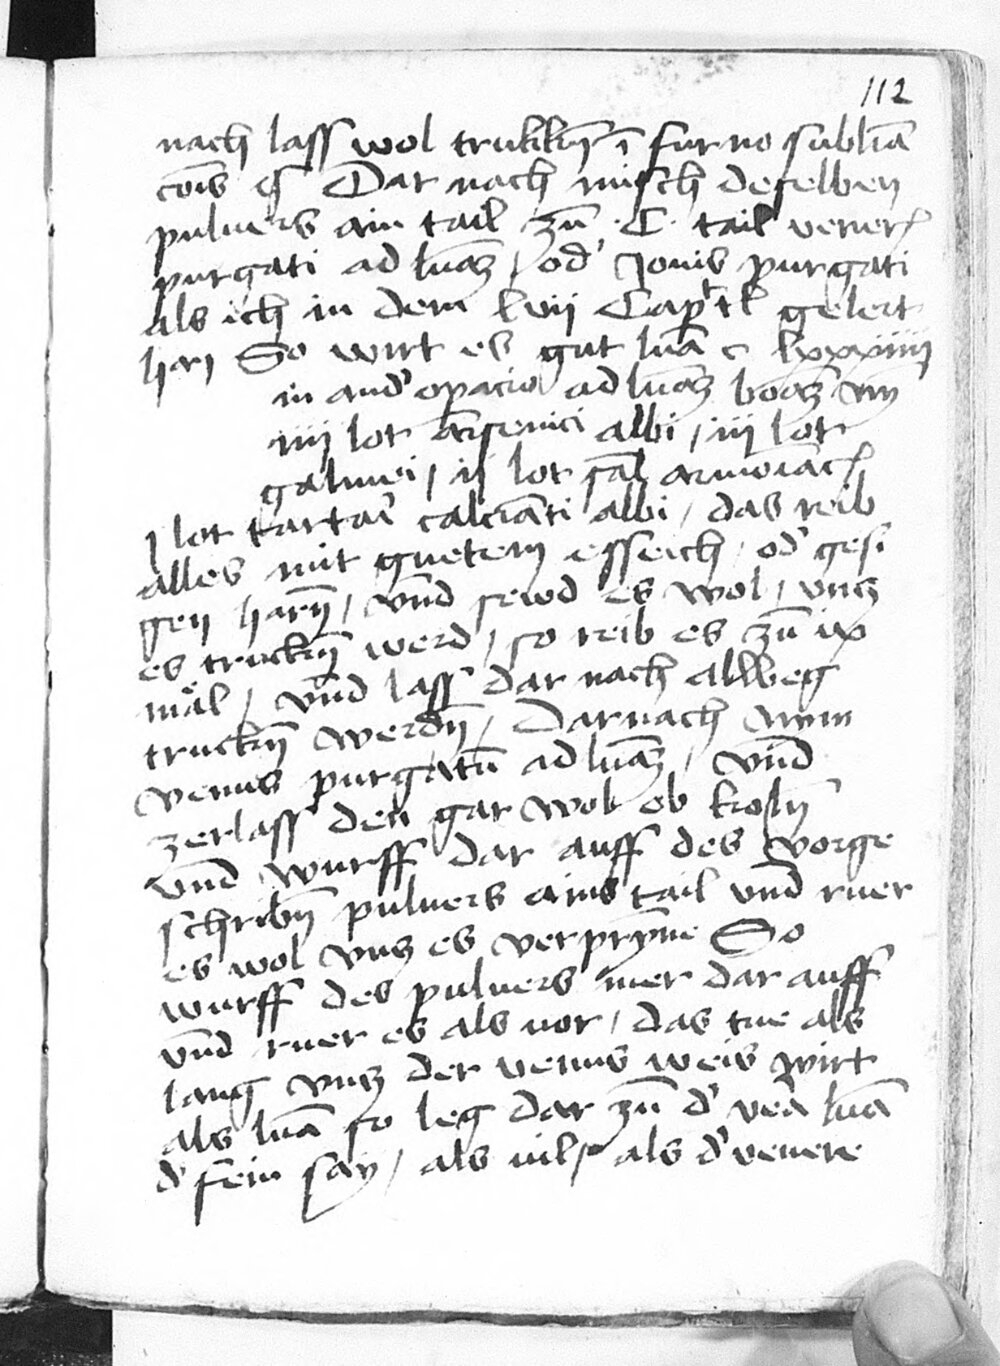 112
nach lass wol trukkn̄ ī furno sublīa
cōis Dar nach misch deselben
puluers ain tail zū .C. tail vener
purgati ad luā / od' Jouis purgati
als ich in dem lvii Capt'l gelert
han So wirt es gut luā c lxxxiiii
in and' opacio ad luā boā
iiii lot arsenici albi / iii lot
galmei / ii lot sal armoīac
j lot tartar calciāti albi / das reib
alles mit guetem esseich / od' gesi
gen harn̄ / vnd sewd es wol / vnʒ
es truckn̄ werd / so reib es zū ix
mǎl / vnd lass dar nach allweg
truckn̄ werdn̄ / Darnach nym
venus purgatū ad luā / vnd
zerlass den gar wol ob koln̄
vnd wurff dar auff des vorge
schribn̄ puluers ains tail vnd ruer
es wol vnʒ es verprynne So
wurff des puluers mer dar auff
vnd ruer es als vor / das tue als
lang vnʒ der venus weis wirt
als luā so leg dar zū d' vēa luā
d' fein say / als uil / als d' venere